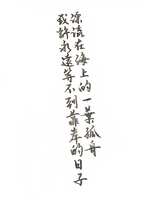 漂流在海上的一葉孤舟
或許永遠等不到靠岸的日子